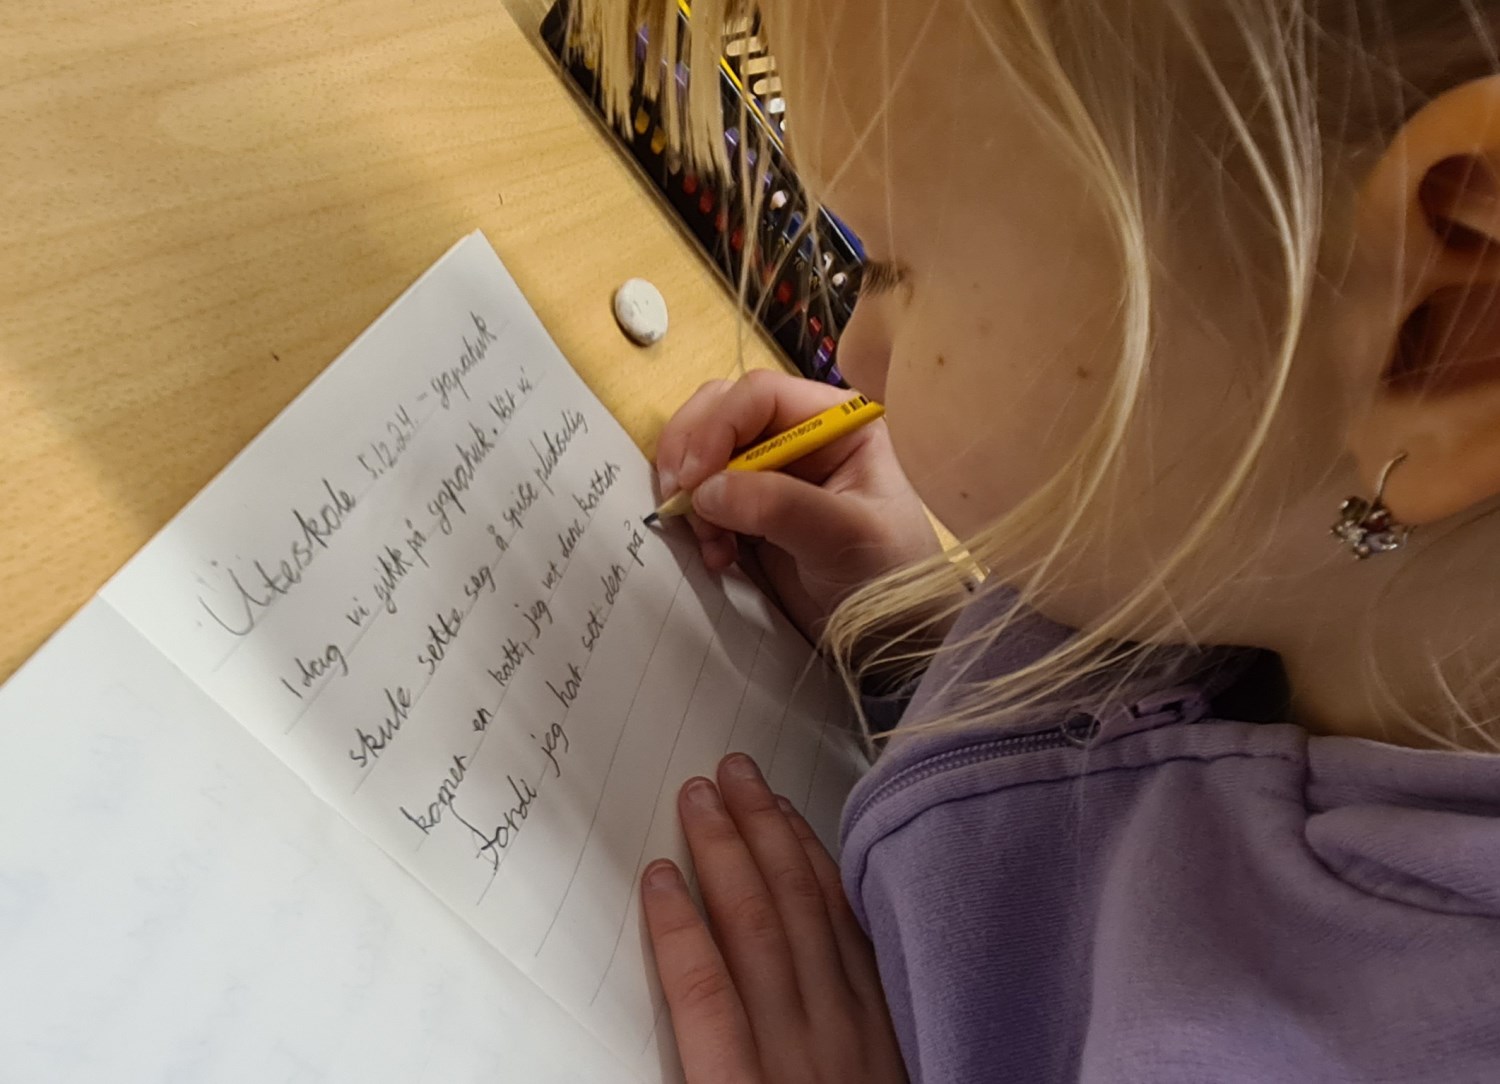 Uteskole 5.12.24 - gapahuk
I dag vi gikk på gapahuk. Når vi
skule sette seg å spise plutselig
komer en katt, jeg vet denne katten
fordi jeg har set den på